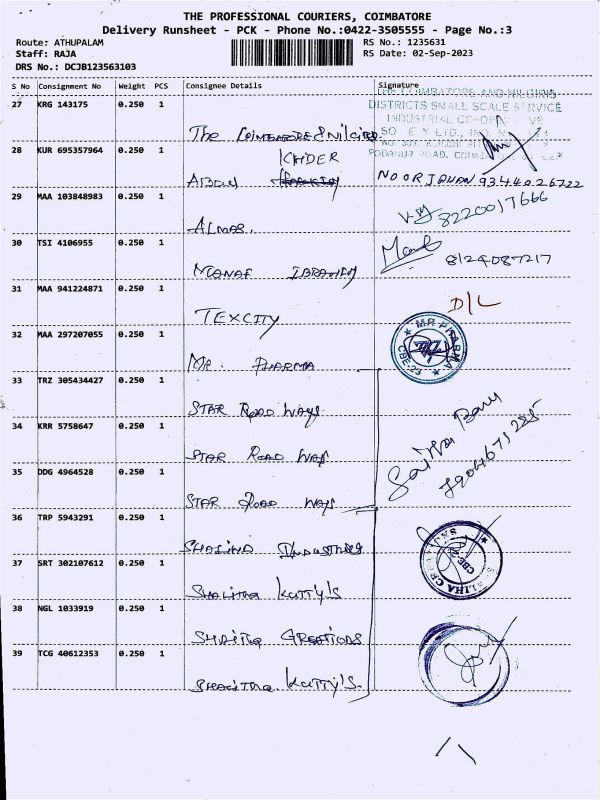 THE PROFESSIONAL COURIERS, COIMBATORE
Delivery Runsheet - PCK - Phone No.:0422-3505555 - Page No.:3
Route: ATHUPALAM
Staff: RAJA
DRS No.: DCJB123563103
RS No.: 1235631
RS Date: 02-Sep-2023
S No Consignment No Weight PCS Consignee Details Signature
27 KRG 143175 0.250 1
The Coimbatore & Nilgiris
THE COIMBATORE AND NILGIRIS
DISTRICTS SMALL SCALE SERVICE
INDUSTRIAL
28 KUR 695357964 0.250 1
KHDER
ABDUL
NOORJAHAN 9344026722
29 MAA 103848983 0.250 1
ALMAS.
8220017666
30 TSI 4106955 0.250 1
MANAF IBRAHIM
8124087217
31 MAA 941224871 0.250 1
TEXCITY
D/L
32 MAA 297207055 0.250 1
MR. PHARMA
MR PHARMA
CBE-23
33 TRZ 305434427 0.250 1
STAR ROAD WAYS
34 KRR 5758647 0.250 1
STAR ROAD WAYS
35 DDG 4964528 0.250 1
STAR ROAD WAYS
36 TRP 5943291 0.250 1
INDUSTRIES
37 SRT 302107612 0.250 1
SHALIHA KUTTY'S
38 NGL 1033919 0.250 1
CREATIONS
39 TCG 40612353 0.250 1
KUTTY'S.